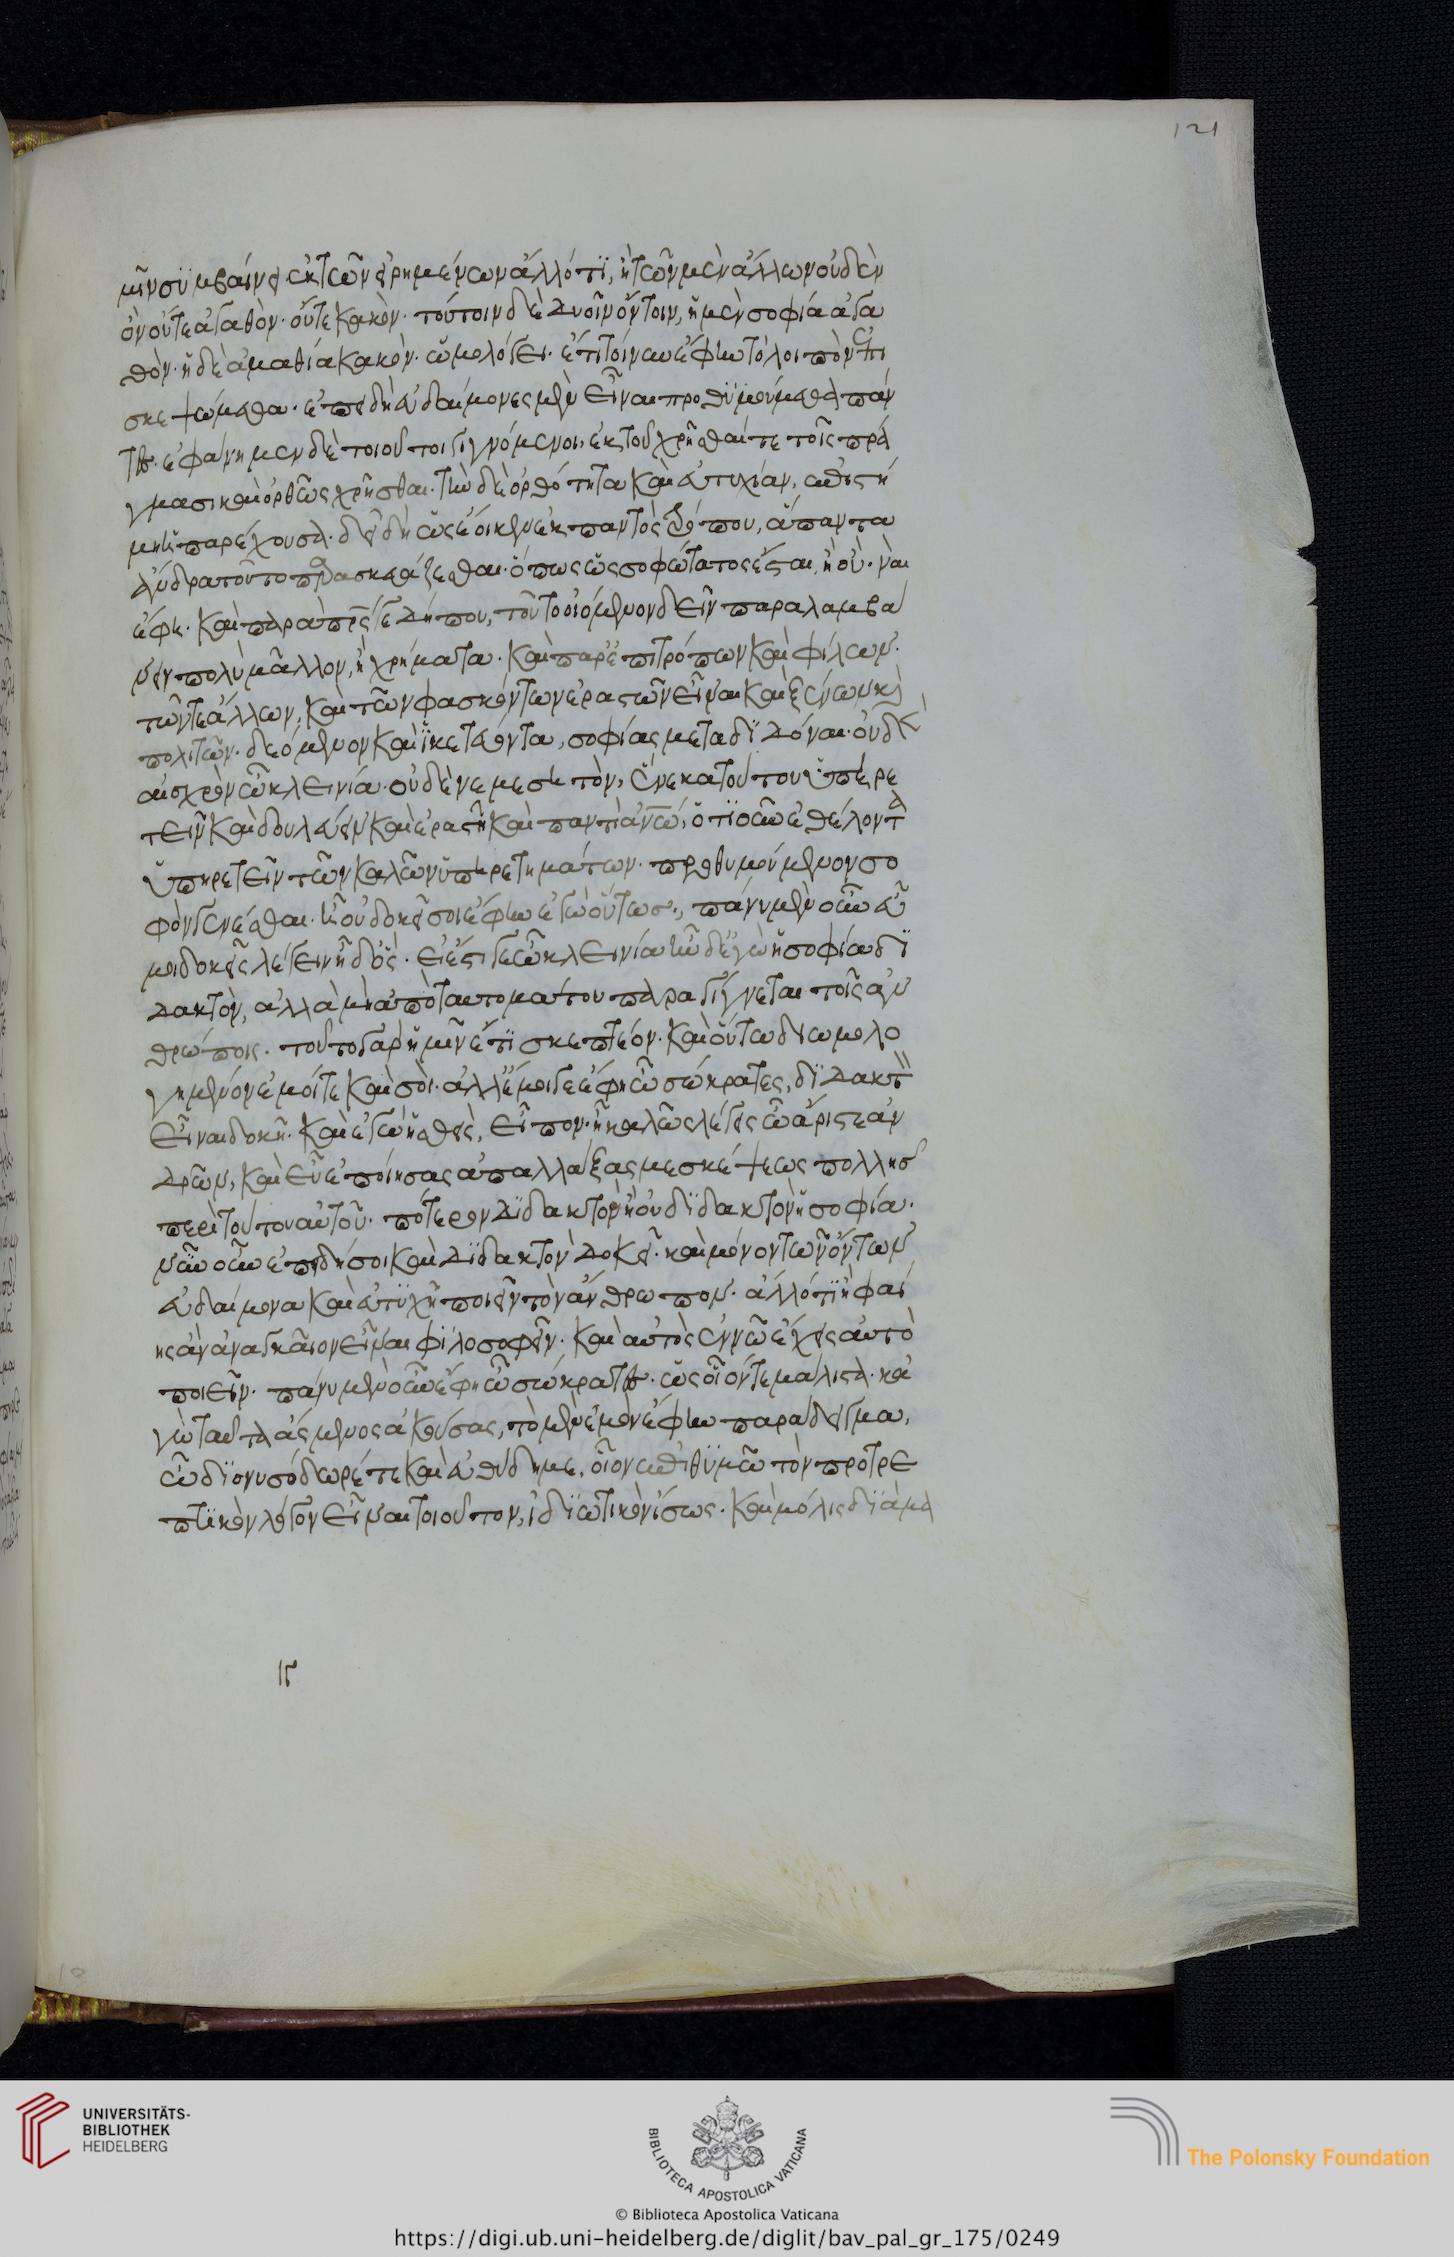 μῖν συμβαίνει ἐκ τῶν εἰρημένων ἄλλό τι, ἢ τῶν μὲν ἄλλων οὐδὲν
ὂν οὔτε ἀγαθὸν· οὔτε κακὸν· τούτοιν δὲ δυοῖν ὄντοιν, ἡ μὲν σοφία ἀγα
θὸν· ἡ δὲ ἀμαθία κακὸν· ὡμολόγει· ἔτι τοίνυν ἔφην τὸ λοιπὸν ἐπι
σκεψώμεθα· ἐπειδὴ εὐδαίμονες μὲν εἶναι προθυμούμεθα πάν
τες· ἐφάνημεν δὲ τοιοῦτοι γιγνόμενοι, ἐκ τοῦ χρῆσθαί τε τοῖς πρά
γμασι καὶ ὀρθῶς χρῆσθαι· τὴν δὲ ὀρθότητα καὶ εὐτυχίαν, ἐπιστή
μη ἡ παρέχουσα· δεῖ δὴ ὡς ἔοικεν ἐκ παντὸς τρόπου, ἅπαντα
ἄνδρα τοῦτο παρασκευάζεσθαι· ὅπως ὡς σοφώτατος ἔσται, ἢ οὐ· ναὶ
ἔφη· καὶ παρὰ πρς γε δήπου, τοῦτο οἰόμενον δεῖν παραλαμβά
νειν πολὺ μᾶλλον, ἢ χρήματα· καὶ παρ' ἐπιτρόπων καὶ φίλων·
τῶν τε ἄλλων, καὶ τῶν φασκόντων ἐραστῶν εἶναι καὶ ξένων καὶ
πολιτῶν· δεόμενον καὶ ἱκετεύοντα, σοφίας μεταδιδόναι· οὐδὲν
αἰσχρὸν ὦ κλεινία· οὐδὲ νεμεσητὸν, ἕνεκα τούτου ὑπηρε
τεῖν καὶ δουλεύειν καὶ ἐραστῇ καὶ παντὶ ἀνω, ὁτιοῦν ἐθέλοντα
ὑπηρετεῖν τῶν καλῶν ὑπηρετημάτων· προθυμούμενον σο
φὸν γενέσθαι· ἢ οὐ δοκεῖ σοι ἔφην ἐγὼ οὕτως., πάνυ μὲν οὖν εὖ
μοι δοκεῖς λέγειν ἦ δ' ὅς· εἰ ἔστι γε ὦ κλεινία ἦν δ' ἐγὼ ἡ σοφία δι
δακτὸν, ἀλλὰ μὴ ἀπὸ ταυτομάτου παραγίγνεται τοῖς ἀν
θρώποις· τοῦτο γὰρ ἡμῖν ἔτι σκεπτέον· καὶ οὔπω διωμολο
γημένον ἐμοί τε καὶ σοὶ· ἀλλ' ἔμοιγε ἔφη ὦ σώκρατες, διδακτὸν
εἶναι δοκεῖ· καὶ ἐγὼ ἡσθεὶς, εἶπον· ἦ καλῶς λέγεις ὦ ἄριστε ἀν
δρῶν, καὶ εὖ ἐποίησας ἀπαλλάξας με σκέψεως πολλῆς
περὶ τούτου αὐτοῦ· πότερον διδακτὸν ἢ οὐ διδακτὸν ἡ σοφία·
νῦν οὖν ἐπειδή σοι καὶ διδακτὸν δοκεῖ· καὶ μόνον τῶν ὄντων
εὐδαίμονα καὶ εὐτυχῆ ποιεῖν τὸν ἄνθρωπον· ἄλλό τι ἢ φαί
ης ἂν ἀναγκαῖον εἶναι φιλοσοφεῖν· καὶ αὐτὸς ἐν νῷ ἔχεις αὐτὸ
ποιεῖν· πάνυ μὲν οὖν ἔφη ὦ σώκρατες· ὡς οἷόν τε μάλιστα· κἀ
γὼ ταῦτα ἄσμενος ἀκούσας, τὸ μὲν ἐμὸν ἔφην παράδειγμα,
ὦ διονυσόδωρέ τε καὶ εὐθύδημε, οἷον ἐπιθυμῶ τὸν προτρε
πτικὸν λόγον εἶναι τοιοῦτον, ἰδιωτικὸν ἴσως· καὶ μόλις διὰ μα
121
© Biblioteca Apostolica Vaticana
UNIVERSITÄTS-
BIBLIOTHEK
HEIDELBERG
BIBLIOTECA APOSTOLICA VATICANA
The Polonsky Foundation
https://digi.ub.uni-heidelberg.de/diglit/bav_pal_gr_175/0249